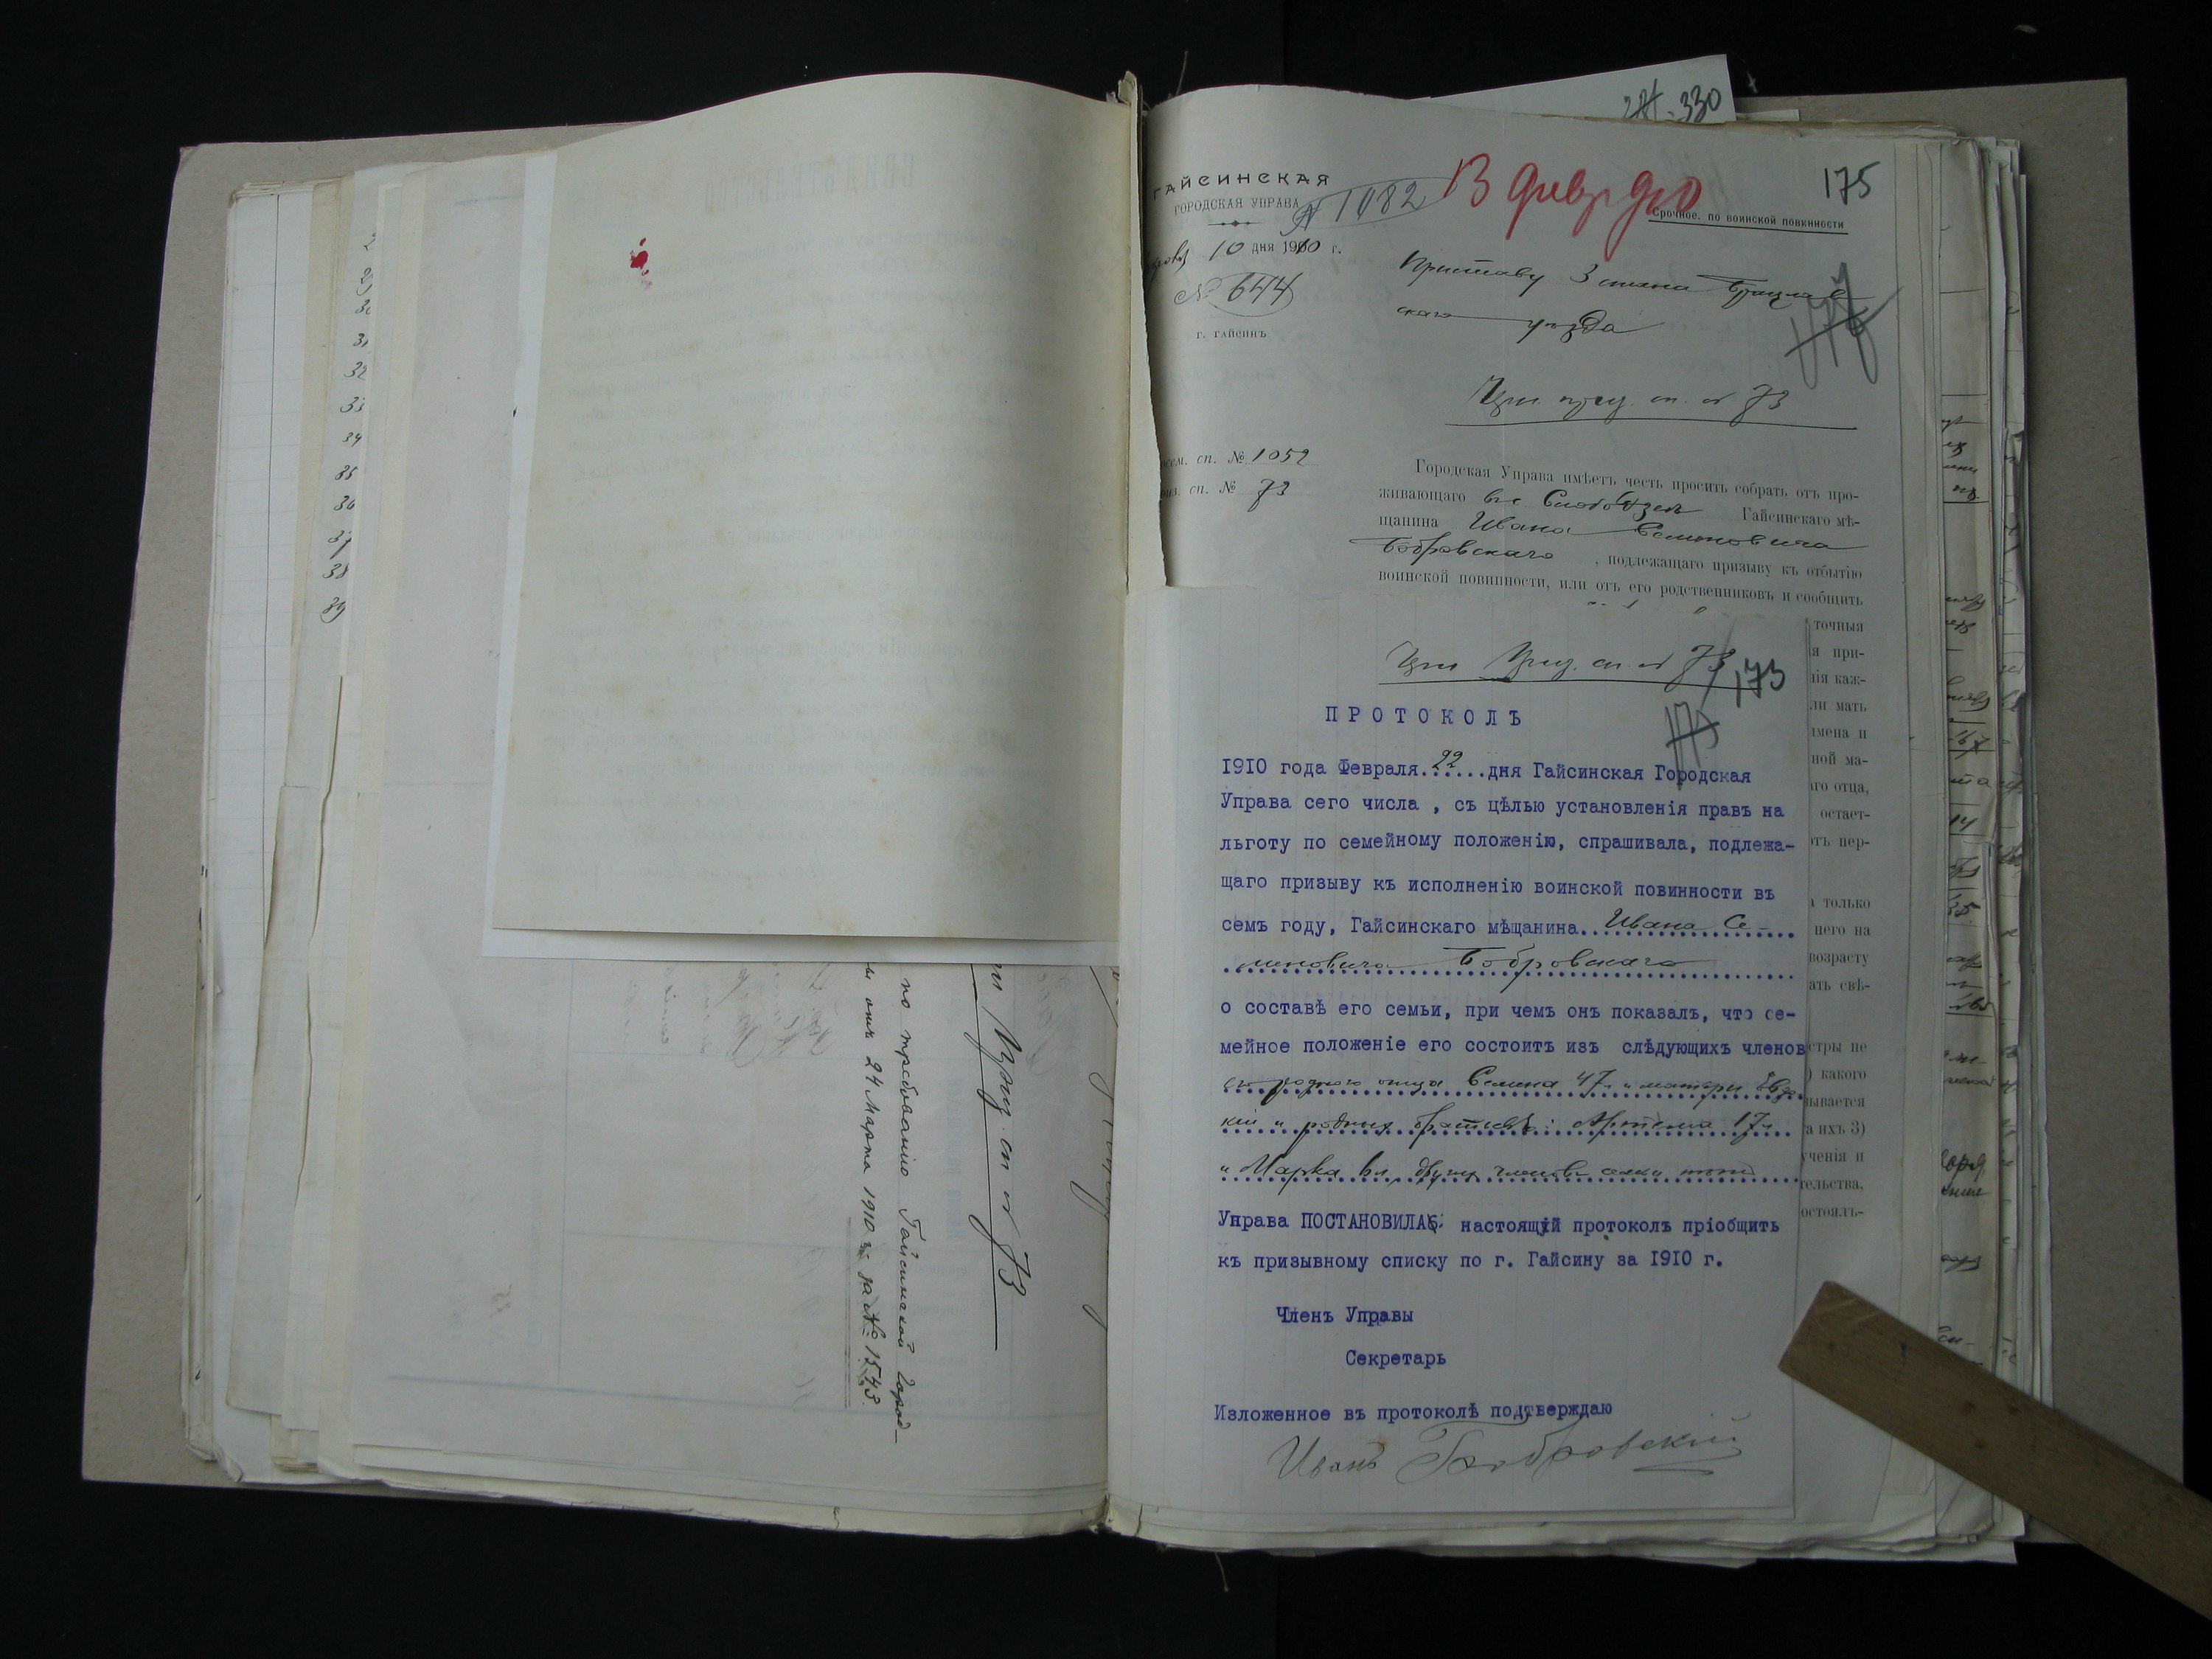 330
ГАЙСИНСКАЯ
ГОРОДСКАЯ УПРАВА
№ 1082
13 февр 910
175
Срочное, по воинской повинности
10 дня 1910 г.
№ 644
г. ГАЙСИНЪ
Приставу 3 стана Брацлав
скаго уѣзда
При приз. сп. № 73
сем. сп. № 1052
сп. № 73
Городская Управа имѣетъ честь просить собрать отъ про-
живающаго въ с Слободзеѣ Гайсинскаго мѣ-
щанина Ивана Семеновича
Бобровскаго, подлежащаго призыву къ отбытію
воинской повинности, или отъ его родственниковъ и сообщить
точныя
при-
каж-
мать
ной ма-
отца,
остает-
пер-
только
него на
возрасту
свѣ-
не
какого
ихъ 3)
и
При Приз. сп. № 73
173
ПРОТОКОЛЪ
1910 года Февраля 22 дня Гайсинская Городская
Управа сего числа , съ цѣлью установленія правъ на
льготу по семейному положенію, спрашивала, подлежа-
щаго призыву къ исполненію воинской повинности въ
семъ году, Гайсинскаго мѣщанина Ивана Се-
меновича Бобровскаго
о составѣ его семьи, при чемъ онъ показалъ, что се-
мейное положеніе его состоитъ изъ слѣдующихъ членов
родного отца Семена 47 л и матери Евдо
кіи и родныхъ братьевъ: Артема 17 л
и Марка 6 л, другихъ членовъ семьи нѣтъ
Управа ПОСТАНОВИЛА: настоящій протоколъ пріобщить
къ призывному списку по г. Гайсину за 1910 г.
Членъ Управы
Секретарь
Изложенное въ протоколѣ подтверждаю
Иванъ Бобровскій
При Приз. сп № 73
по требованію Гайсинской Город-
отъ 24 Марта 1910 г. за № 1543.
32
33
34
35
36
37
38
39